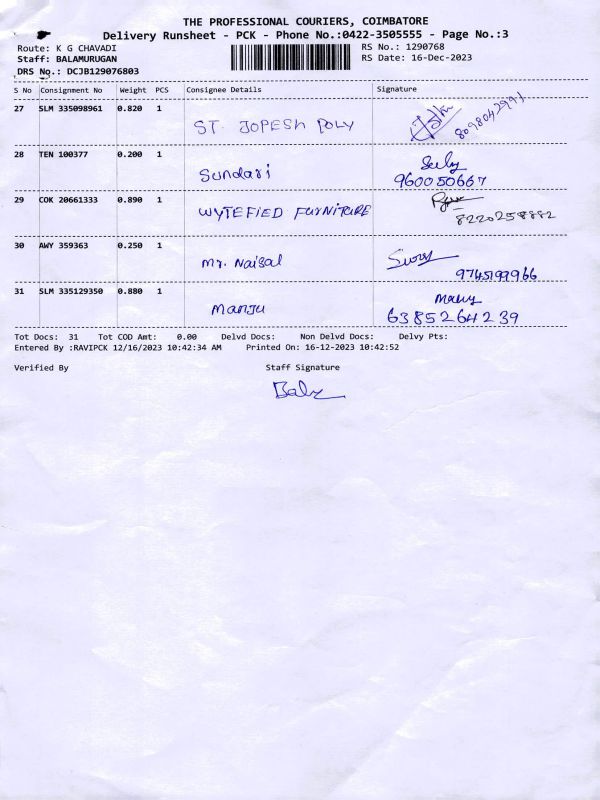 THE PROFESSIONAL COURIERS, COIMBATORE
Delivery Runsheet - PCK - Phone No.:0422-3505555 - Page No.:3
Route: K G CHAVADI RS No.: 1290768
Staff: BALAMURUGAN RS Date: 16-Dec-2023
DRS No.: DCJB129076803
S No Consignment No Weight PCS Consignee Details Signature
27 SLM 335098961 0.820 1 ST. JOPESH POLY 8098042991
28 TEN 100377 0.200 1 Sundari
960050667
29 COK 20661333 0.890 1 WYTEFIED FURNITURE
8220258882
30 AWY 359363 0.250 1 Mr. Naisal
31 SLM 335129350 0.880 1 Manju
6385264239
Tot Docs: 31 Tot COD Amt: 0.00 Delvd Docs: Non Delvd Docs: Delvy Pts:
Entered By :RAVIPCK 12/16/2023 10:42:34 AM Printed On: 16-12-2023 10:42:52
Verified By Staff Signature